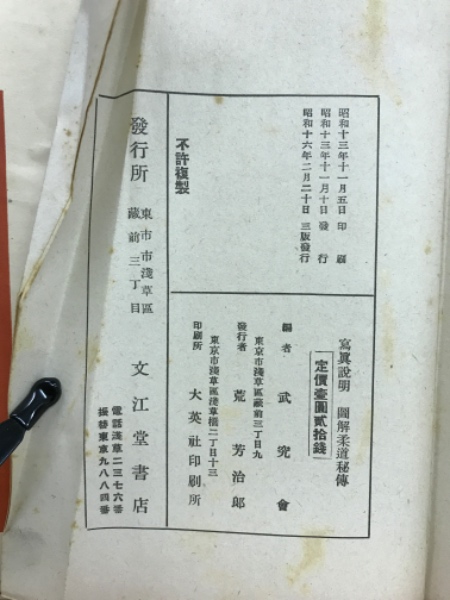 昭和十三年十一月五日 印刷
昭和十三年十一月十日 發行
昭和十六年二月二十日 三版發行
不許複製
寫眞説明 圖解柔道秘傳
定價壹圓貳拾錢
編者 武究會
東京市淺草區藏前三丁目九
發行者 荒芳治郎
東京市淺草區淺草橋二丁目十三
印刷所 大英社印刷所
發行所
東京市淺草區
藏前三丁目
文江堂書店
電話淺草二三七六番
振替東京九八八四番